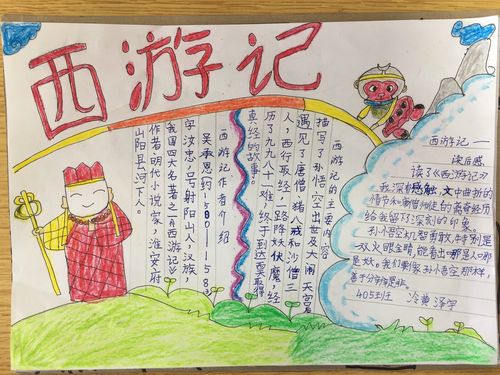 西游记
西游记作者介绍
吴承恩约1500—158
字汝忠,号射阳山人,汉族,
我国四大名著之一《西游记》
作者,明代小说家,淮安府
山阳县河下人。
西游记的主要内容
描写了孙悟空出世及大闹天宫
遇见了唐僧、猪八戒和沙僧三
人,西行取经,一路降妖伏魔,经
历了九九八十难,终于到达西天取得
真经的故事。
西游记一
读后感
读了《西游记》
我深有感触,文中曲折的
情节,和唐僧师徒的离奇经历
给我留下深刻的印象。
孙悟空机智勇敢,特别是
一双火眼金睛,能看出哪是人哪
是妖。我们要像孙悟空那样,
善于分辨是非。
405班 泽宇